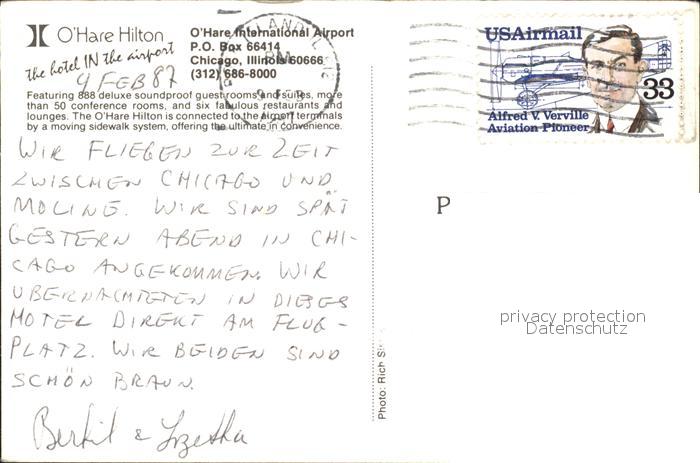 O'Hare Hilton
the hotel IN the airport
O'Hare International Airport
P.O. Box 66414
Chicago, Illinois 60666
(312) 686-8000
4 FEB 87
Featuring 888 deluxe soundproof guest rooms and suites, more
than 50 conference rooms, and six fabulous restaurants and
lounges. The O'Hare Hilton is connected to the airport terminals
by a moving sidewalk system, offering the ultimate in convenience.
WIR FLIEGEN ZUR ZEIT
ZWISCHEN CHICAGO UND
MOLINE. WIR SIND SPÄT
GESTERN ABEND IN CHI-
CAGO ANGEKOMMEN. WIR
UBERNACHTETEN IN DIESES
HOTEL DIREKT AM FLUG-
PLATZ. WIR BEIDEN SIND
SCHÖN BRAUN.
Bertil &
Photo: Rich
PM
USAirmail
33
Alfred V. Verville
Aviation Pioneer
P
privacy protection
Datenschutz